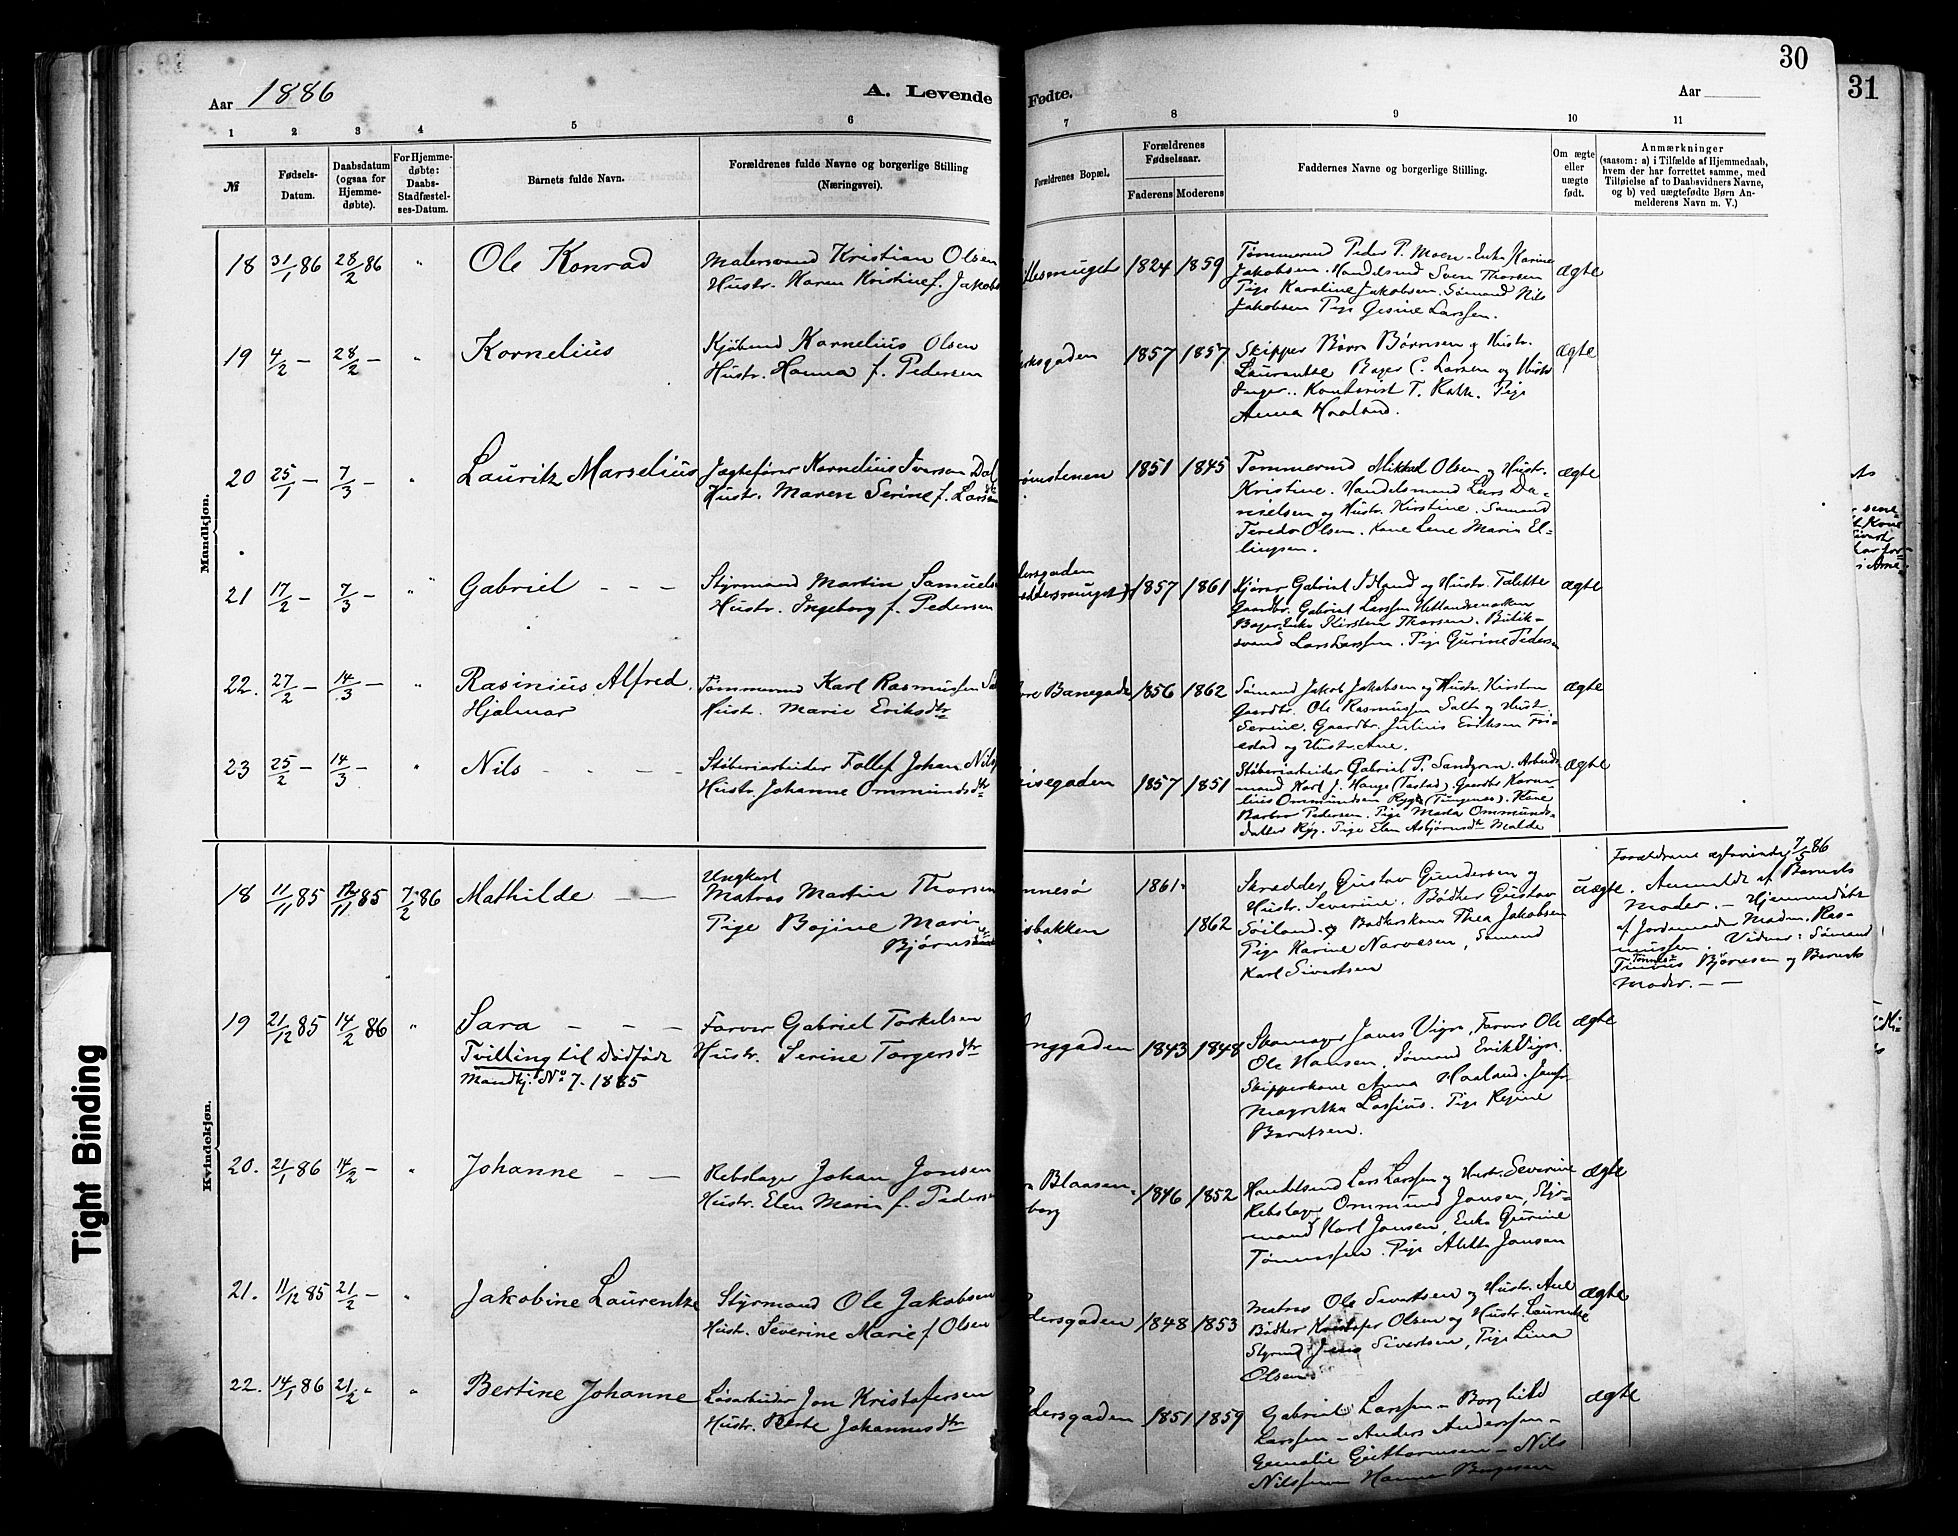 30
31
Aar 1886
A. Levende Fødte.
Aar
1 2 3 4 5 6 7 8 9 10 11
№
Fødsels-
Datum.
Daabsdatum
(ogsaa for
Hjemme-
døbte).
For Hjemme-
døbte:
Daabs-
Stadfæstel-
ses-Datum.
Barnets fulde Navn.
Forældrenes fulde Navne og borgerlige Stilling
(Næringsvei).
Forældrenes Bopæl.
Forældrenes
Fødselsaar.
Faderens Moderens
Faddernes Navne og borgerlige Stilling.
Om ægte
eller
uægte
født.
Anmærkninger
(saasom: a) i Tilfælde af Hjemmedaab,
hvem der har forrettet samme, med
Tilføielse af to Daabsvidners Navne,
og b) ved uægtefødte Børn An-
melderens Navn m. V.)
Mandkjøn.
18 31/1 86 28/2 86 " Ole Konrad
Malersvend Kristian Olsen
Hustr. Karen Kristine f. Jakobs
1824 1859
Tømmermd Peder P. Moen. Enke Karine
Jakobsen. Handelsmd Sven Thorsen
Pige Karoline Jakobsen. Sømand Nils
Jakobsen Pige Gesine Larssen.
ægte
19 4/2 – 28/2 – " Kornelius
Kjøbmd Kornelius Olsen
Hustr. Hanna f. Pedersen
1857 1857
Skipper Børn Børnsen og Hustr.
Laurentze Bager C. Larsen og Hustr
Inger.. Kontorist T. Pige
Anna Haaland.
ægte
20 25/1 – 7/3 – " Lauritz Marselius
Jægtefører Kornelius Iversen Dal
Hustr. Maren Serine f. Larsen
1851 1845
Tømmermd Mikkal Olsen og Hustr.
Kristine. Handelsmand Lars Da-
nielsen og Hustr. Kirstine. Sømand
Olsen. Kone Lene Marie El-
lingsen.
ægte
21 17/2 – 7/3 – " Gabriel – – –
Styrmand Martin Samuels
Hustr. Ingeborg f. Pedersen
dersgaden
1857 1861
Kjører Gabriel Idland og Hustr. Talette
Gaardbr. Gabriel Larssen
Bager Enke Kirsten Thorsen. Butik-
svend Lars Larssen. Pige Gurine Peders
ægte
22. 27/2 – 14/3 – " Rasinius Alfred
Hjalmar
Tømmermd Karl Rasmussen
Hustr. Marie Eriksdtr
re Banegade 1856 1862
Sømand Jakob Jakobsen og Hustr. Kirsten
Gaardbr. Ole Rasmussen Salte og Hustr.
Serine. Gaardbr. Julius Eriksen Fri-
estad og Hustr. Ane.
ægte
23 25/2 – 14/3 – " Nils – – –
Støberiarbeider Tollef Johan Nils
Hustr. Johanne Ommundsdtr
isegaden 1857 1851
Støberiarbeider Gabriel P. Sandgren. Arbeids
mand Karl J. Hauge (Tastad). Gaardbr Korne-
lius Ommundsen Rygg (Tungenes). Kone
Barbro Pedersen. Pige Marta Ommunds-
datter Ryg. Pige Elen Asbjørnsdtr Malde
ægte
Kvindekjøn.
18 11/11 85 85 7/2 86 Mathilde – –
Ungkarl
Matros Martin Thorsen
Pige Bojine Marie
Bjørns
isbakken
1861
1862
Skredder Gustav Gundersen og
Hustr. Severine. Bødker Gustav
Søiland og Bødkerkone Thea Jakobsen
Pige Karine Narvesen, Sømand
Karl Sivertsen
uægte.
Forældrene ægtevindes 7/5 86
Anmeldt af Barnets
Moder. – Hjemmedøbt
af Jordemoder Madm. Ras-
mussen. Vidner: Sømand
Tønnes Bjørnsen og Barnets
Moder. – –
19 21/12 85 14/2 86 " Sara – – –
Tvilling til Dødføde
Mandkj. No 7. 1885
Farver Gabriel Torkelsen
Hustr. Serine Torgersdtr
nggaden 1843 1848
Skomager Jonas Vigre, Farver Ole
Ole Hansen, Sømand Erik Vigre.
Skipperkone Anna Haaland. Jomfr
Magretha Lassius. Pige Regine
Berntsen.
ægte
20. 21/1 86 14/2 – " Johanne – –
Rebslager Johan Jonsen
Hustr. Elen Marie f. Peders
Blaasen-
borg
1846 1852
Handelsmd Lars Larssen og Hustr. Severine
Rebslager Ommund Jonsen, Styr-
mand Karl Jonsen, Enke Gurine
Tønnessen. Pige Alette Jonsen
ægte
21. 11/12 85 21/2 – " Jakobine Laurentze
Styrmand Ole Jakobsen
Hustr. Severine Marie f. Olsen
dersgaden 1848 1853
Matros Ole Sivertsen og Hustr. Ane
Bødker Kristofer Olsen og Hustr. Laurentze
Styrmd Jens Sivertsen, Pige Lina
Olsen
ægte
22. 14/1 86 21/2 " " Bertine Johanne
Løsarbeider Jon Kristofersen
Hustr. Berte Johannesdtr
dersgaden 1851 1859
Gabriel Larssen – Borghild
Larssen – Anders Anderssen –
Guttormsen – Nils
Nilssen Hanna Børgesen
ægte
Tight Binding